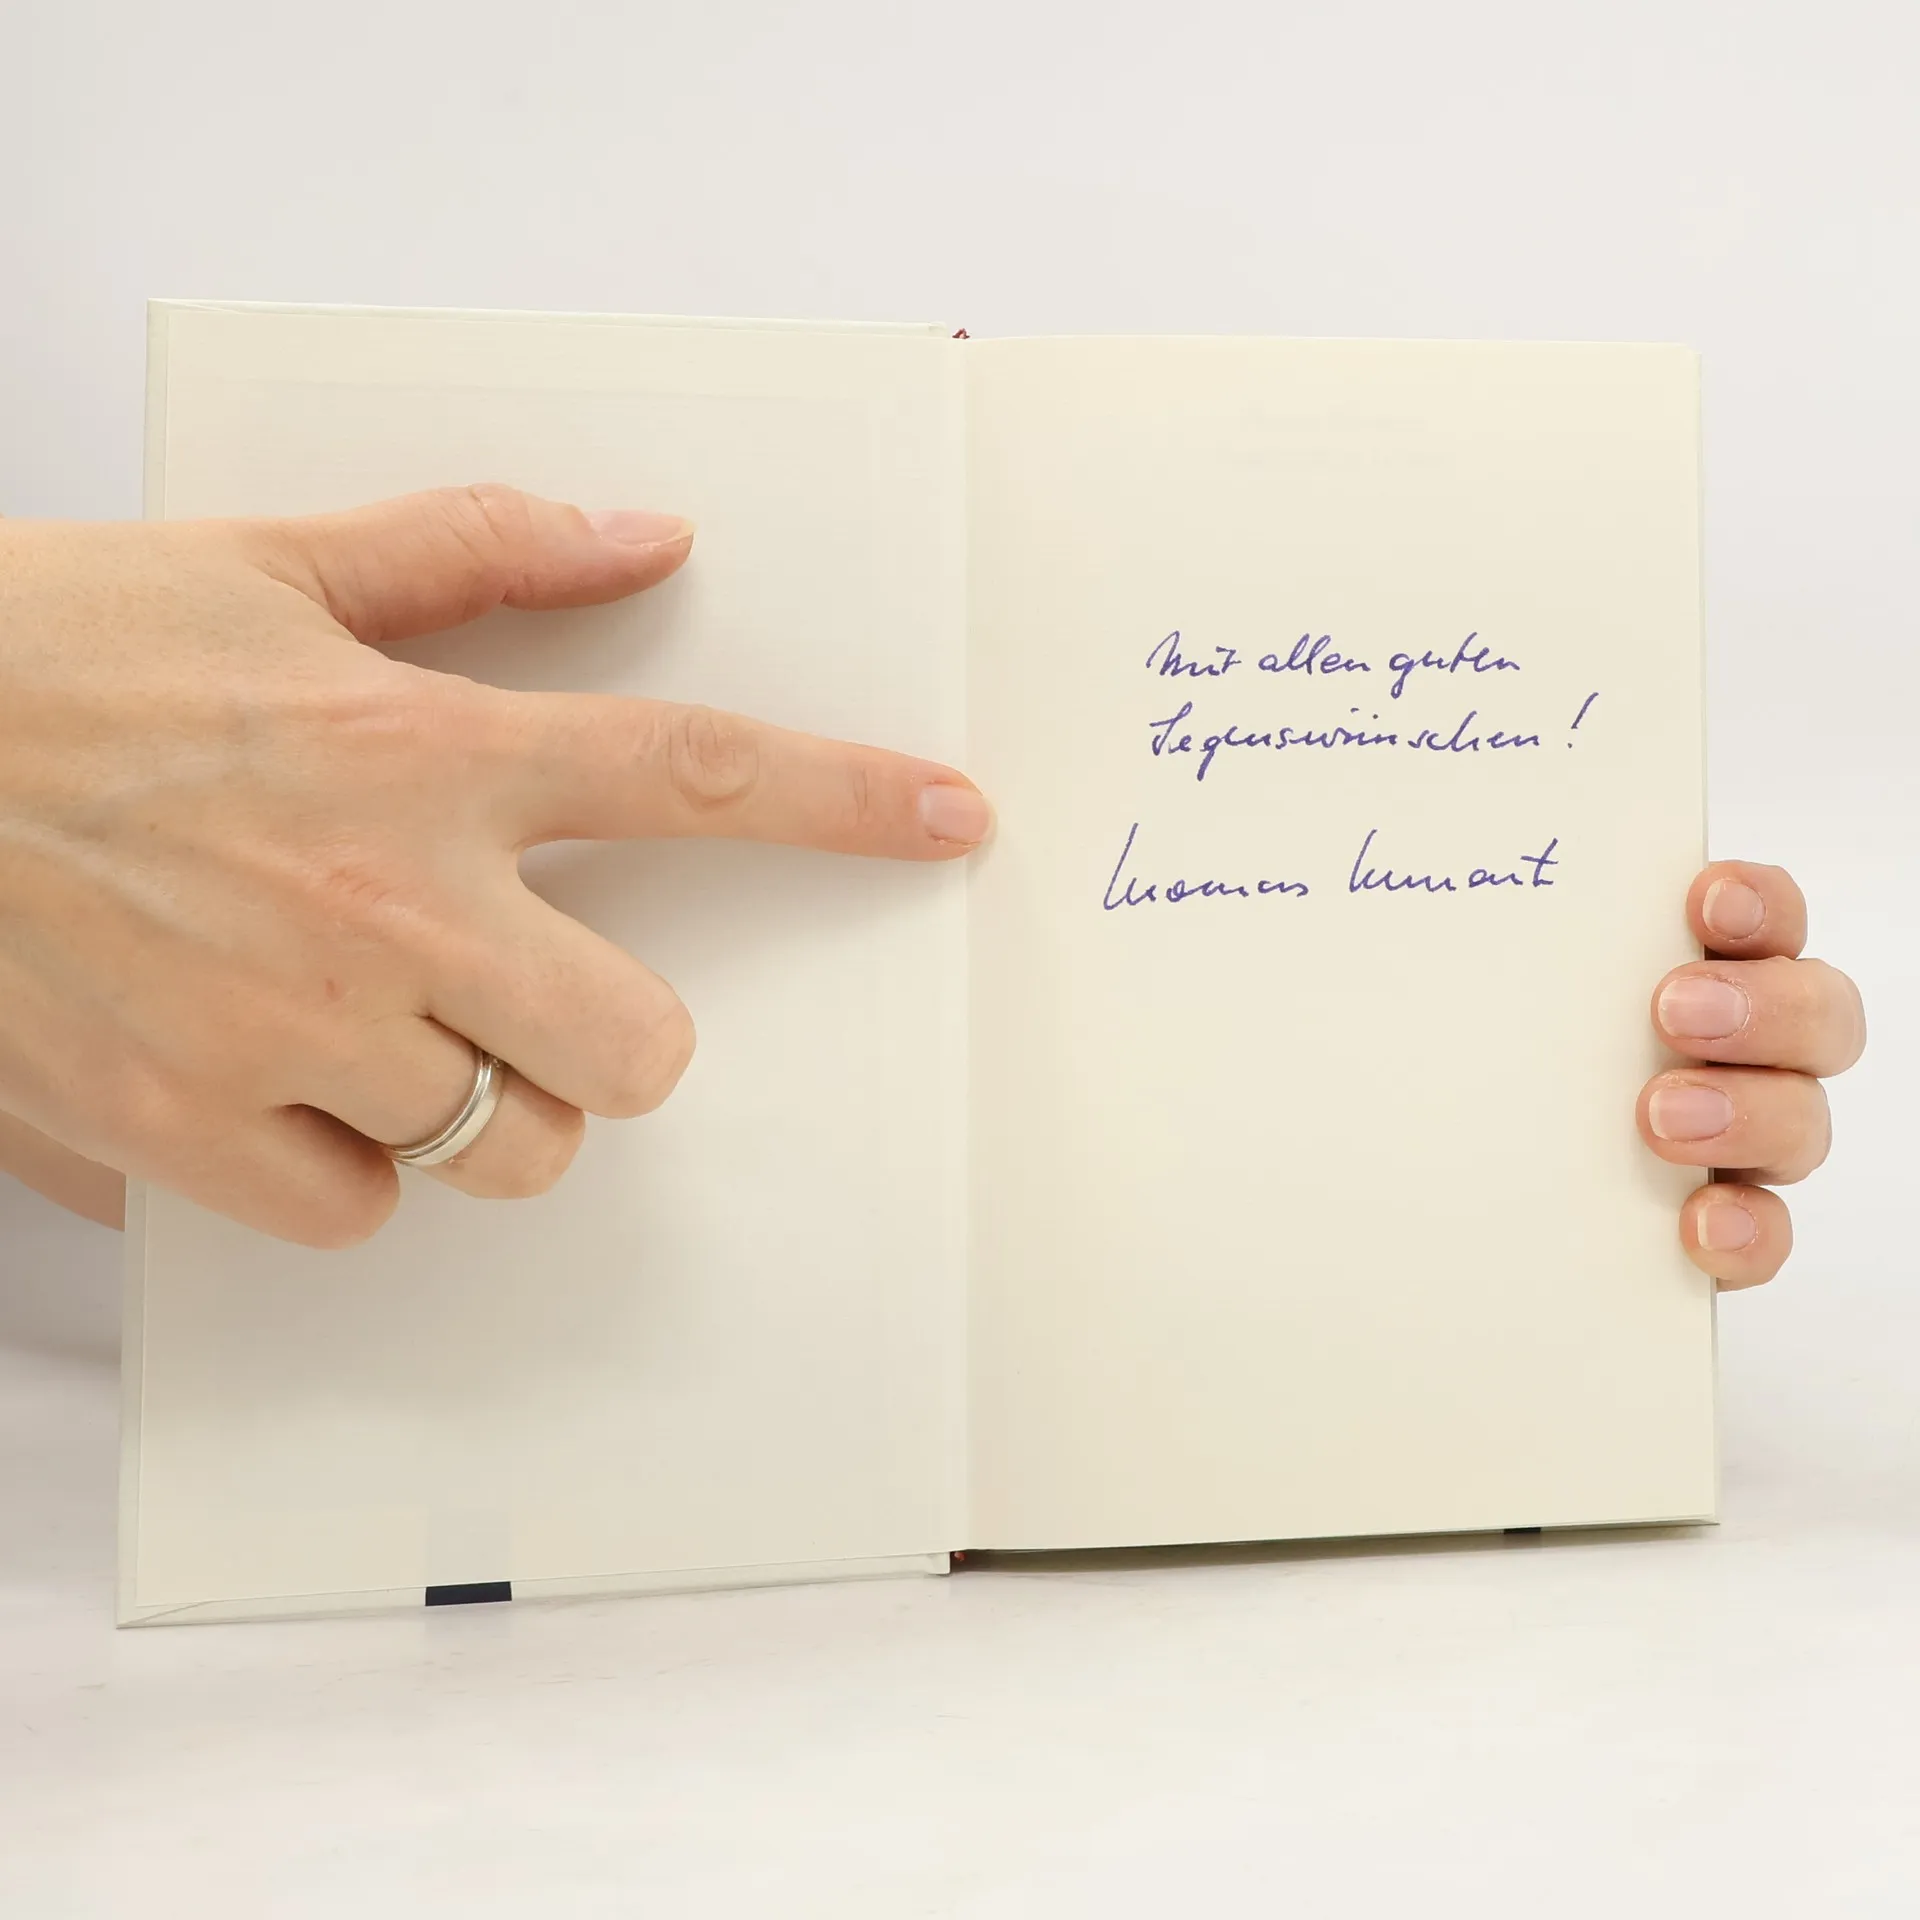 Mit allen guten
Segenswünschen!
Thomas